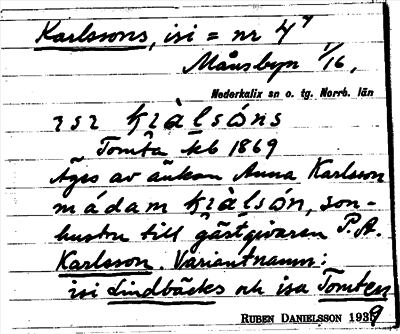 Karlssons, isi = nr 4⁷
Månsbyn 1/16,
Nederkalix sn o. tg. Norrb. län
Tomta skb 1869
Äges av änkan Anna Karlsson
mádam son-
hustru till gästgivaren P. A.
Karlsson. Variantnamn:
isi Lindbäcks och isa Tomten
RUBEN DANIELSSON 1939